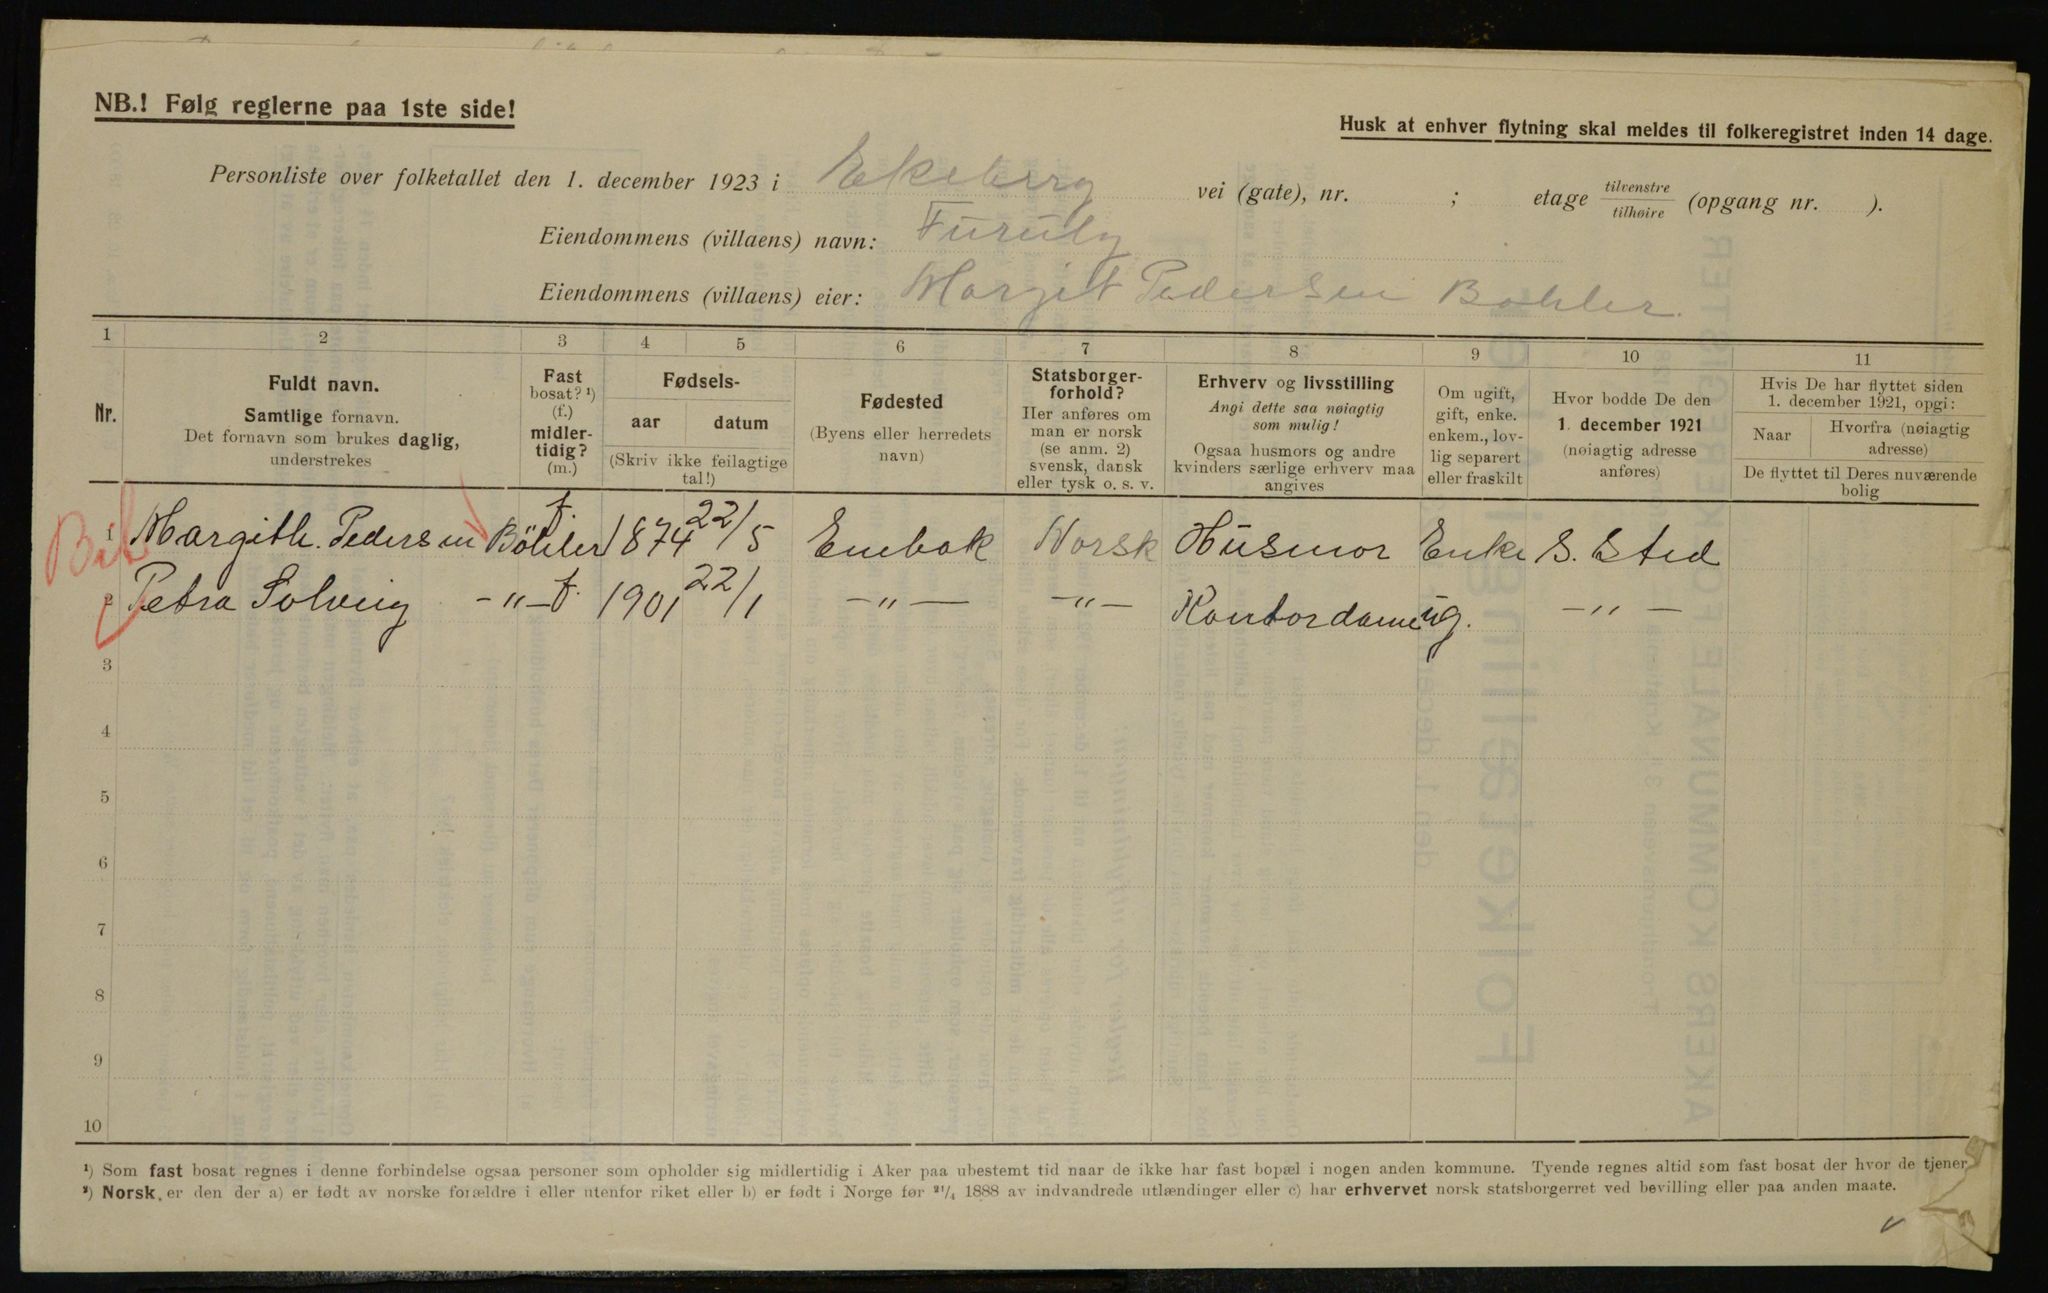 NB.! Følg reglerne paa 1ste side!
Husk at enhver flytning skal meldes til folkeregistret inden 14 dage.
Personliste over folketallet den 1. december 1923 i Ekeberg vei (gate), nr. ; etage tilvenstre/tilhøire (opgang nr. ).
Eiendommens (villaens) navn: Furuly
Eiendommens (villaens) eier: Margit Pedersen Bohler.
1 2 3 4 5 6 7 8 9 10 11
Nr.
Fuldt navn.
Samtlige fornavn.
Det fornavn som brukes daglig,
understrekes
Fast
bosat? ¹)
(f.)
midler-
tidig?
(m.)
Fødsels-
aar datum
(Skriv ikke feilagtige
tal!)
Fødested
(Byens eller herredets
navn)
Statsborger-
forhold?
Her anføres om
man er norsk
(se anm. 2)
svensk, dansk
eller tysk o. s. v.
Erhverv og livsstilling
Angi dette saa nøiagtig
som mulig!
Ogsaa husmors og andre
kvinders særlige erhverv maa
angives
Om ugift,
gift, enke.
enkem., lov-
lig separert
eller fraskilt
Hvor bodde De den
1. december 1921
(nøiagtig adresse
anføres)
Hvis De har flyttet siden
1. december 1921, opgi:
Naar Hvorfra (nøiagtig
adresse)
De flyttet til Deres nuværende
bolig
1 Margith. Pedersen Böhler f. 1874 22/5 Enebak Norsk Husmor Enke S. Sted
2 Petra Solveig -"- f. 1901 22/1 -"- -"- Kontordame ug. -"-
3
4
5
6
7
8
9
10
¹) Som fast bosat regnes i denne forbindelse ogsaa personer som opholder sig midlertidig i Aker paa ubestemt tid naar de ikke har fast bopæl i nogen anden kommune. Tyende regnes altid som fast bosat der hvor de tjener
²) Norsk, er den der a) er født av norske forældre i eller utenfor riket eller b) er født i Norge før ²¹/₄ 1888 av indvandrede utlændinger eller c) har erhvervet norsk statsborgerret ved bevilling eller paa anden maate.